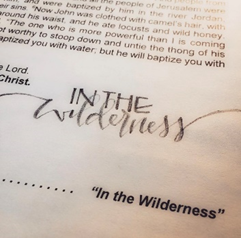 and were baptized by him in the river Jordan,
their sins. "Now John was clothed with camel's hair, with
around his waist, and he ate locusts and wild honey.
"The one who is more powerful than I is coming
not worthy to stoop down and untie the thong of his
baptized you with water; but he will baptize you with
e Lord.
Christ.
IN THE
Wilderness
"In the Wilderness"